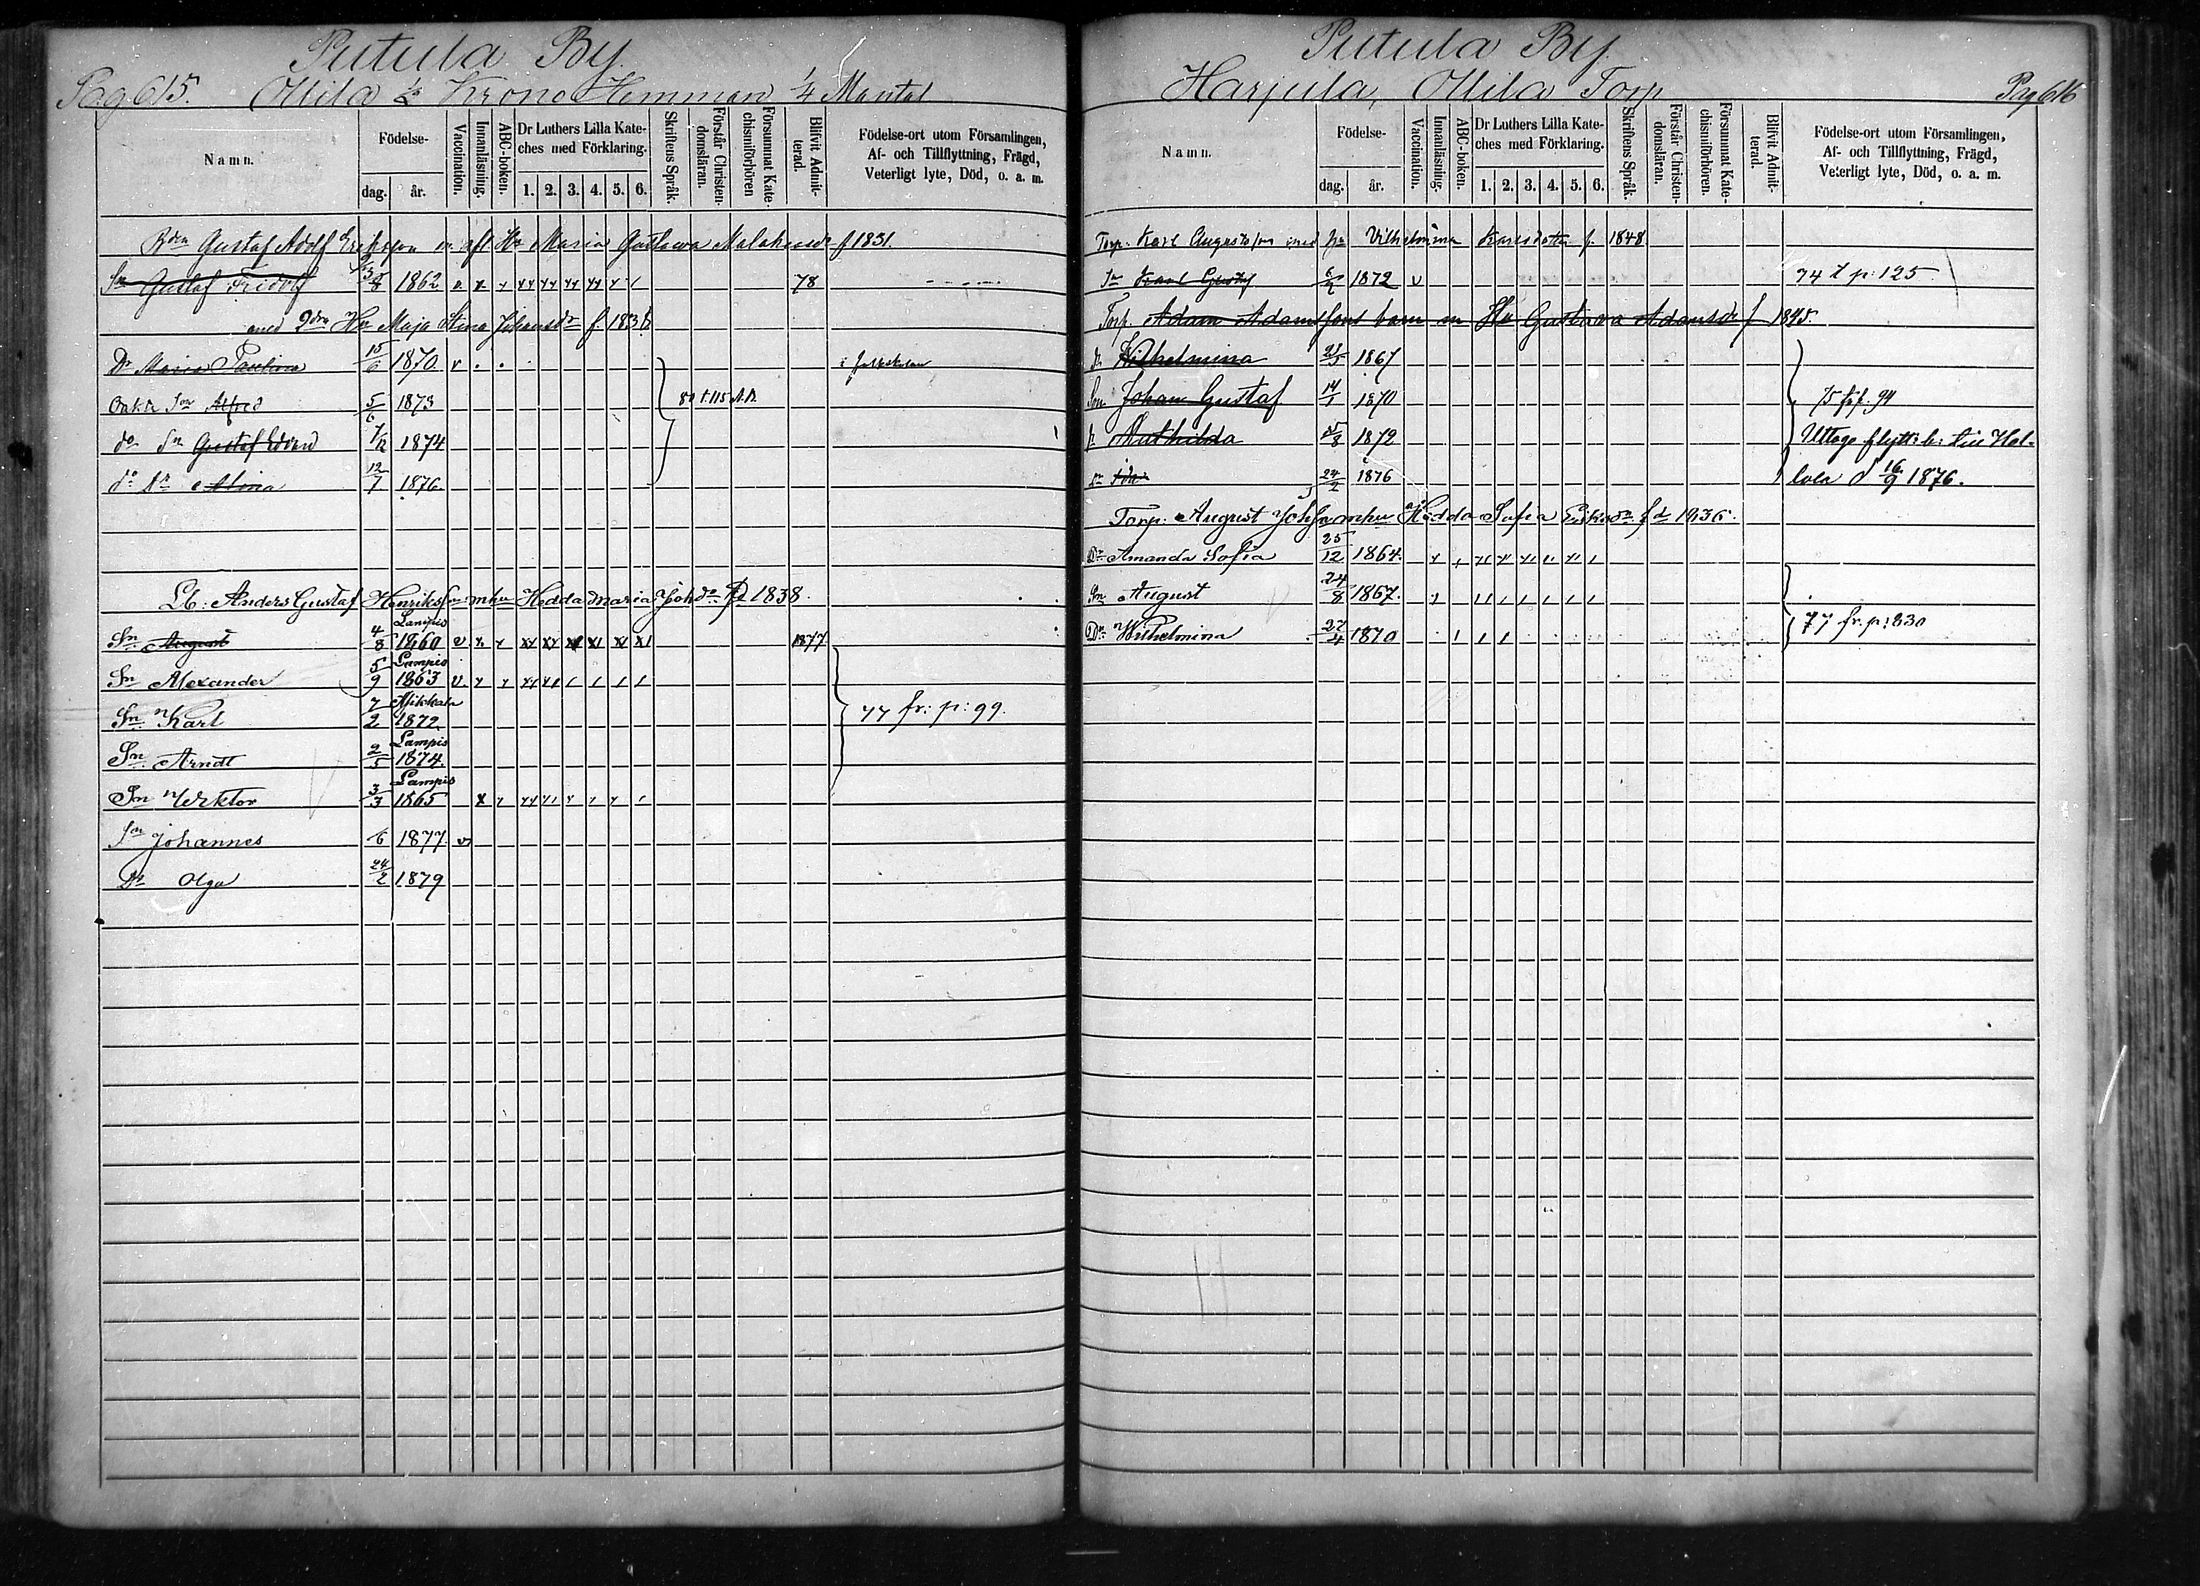 Putula By.
Pag 615. Ollila ½ Krono Hemman ¼ Mantal
Namn.
Födelse-
dag. år.
Vaccination.
Innanläsning.
ABC-boken.
Dr Luthers Lilla Kate-
ches med Förklaring.
1. 2. 3. 4. 5. 6.
Skriftens Språk.
Förstår Christen-
domsläran.
Försummat Kate-
chismiförhören
Blifvit Admit-
terad.
Födelse-ort utom Församlingen,
Af- och Tillflyttning, Frägd,
Veterligt lyte, Död, o. a. m.
Bden Gustaf Adolf Eriksson m. afl. Hu Maria Gustava f 1831.
Sn Gustaf Fridolf 1862 78
med 2dra Hu Maja Stina Johansdr f. 1838
Dr Maria Paulina 15/6 1870. v i folkskolan
Oäkta Son Alfred 5/6 1873 80 t. 115 A.B.
do Sn Gustaf Edvard 7/12 1874
do Dr Alina 12/7 1876.
Lb: Anders Gustaf Henriksson mhu Hedda Maria Johdr fd 1838.
Sn August 4/8 Lampis 1860 v 1877
Sn Alexander 5/9 Lampis 1863 v.
Sn Karl 7/2 1872 77 fr: p: 99.
Sn Arndt 2/5 Lampis 1874.
Sn Viktor 3/3 Lampis 1865
Sn Johannes 6 1877. v
Dr Olga 24/2 1879
Putula By.
Harjula, Ollila Torp Pag 616
Namn.
Födelse-
dag. år.
Vaccination.
Innanläsning.
ABC-boken.
Dr Luthers Lilla Kate-
ches med Förklaring.
1. 2. 3. 4. 5. 6.
Skriftens Språk.
Förstår Christen-
domsläran.
Försummat Kate-
chismiförhören.
Blifvit Admit-
terad.
Födelse-ort utom Församlingen,
Af- och Tillflyttning, Frägd,
Veterligt lyte, Död, o. a. m.
Torp. Karl Augustsson med hu Vilhelmina Karlsdotter f. 1848
Sn Karl Gustaf 1872 v 74 t p: 125
Torp. Adam Adamssons barn m Hu Gustava Adamsdr f 1845.
Dr Wilhelmina 1867
Son Johan Gustaf 14/1 1870 75 fr p. 94
Dr Mathilda 1872 Uttogo flytt.b. till Hol-
Dr Ida 24/2 1876 lola d 16/9 1876.
Torp: August mhu Hedda Sofia fd 1836.
Dr Amanda Sofia 25/12 1864.
Sn August 24/8 1867.
Dr Wilhelmina 27/4 1870 77 fr. p: 830